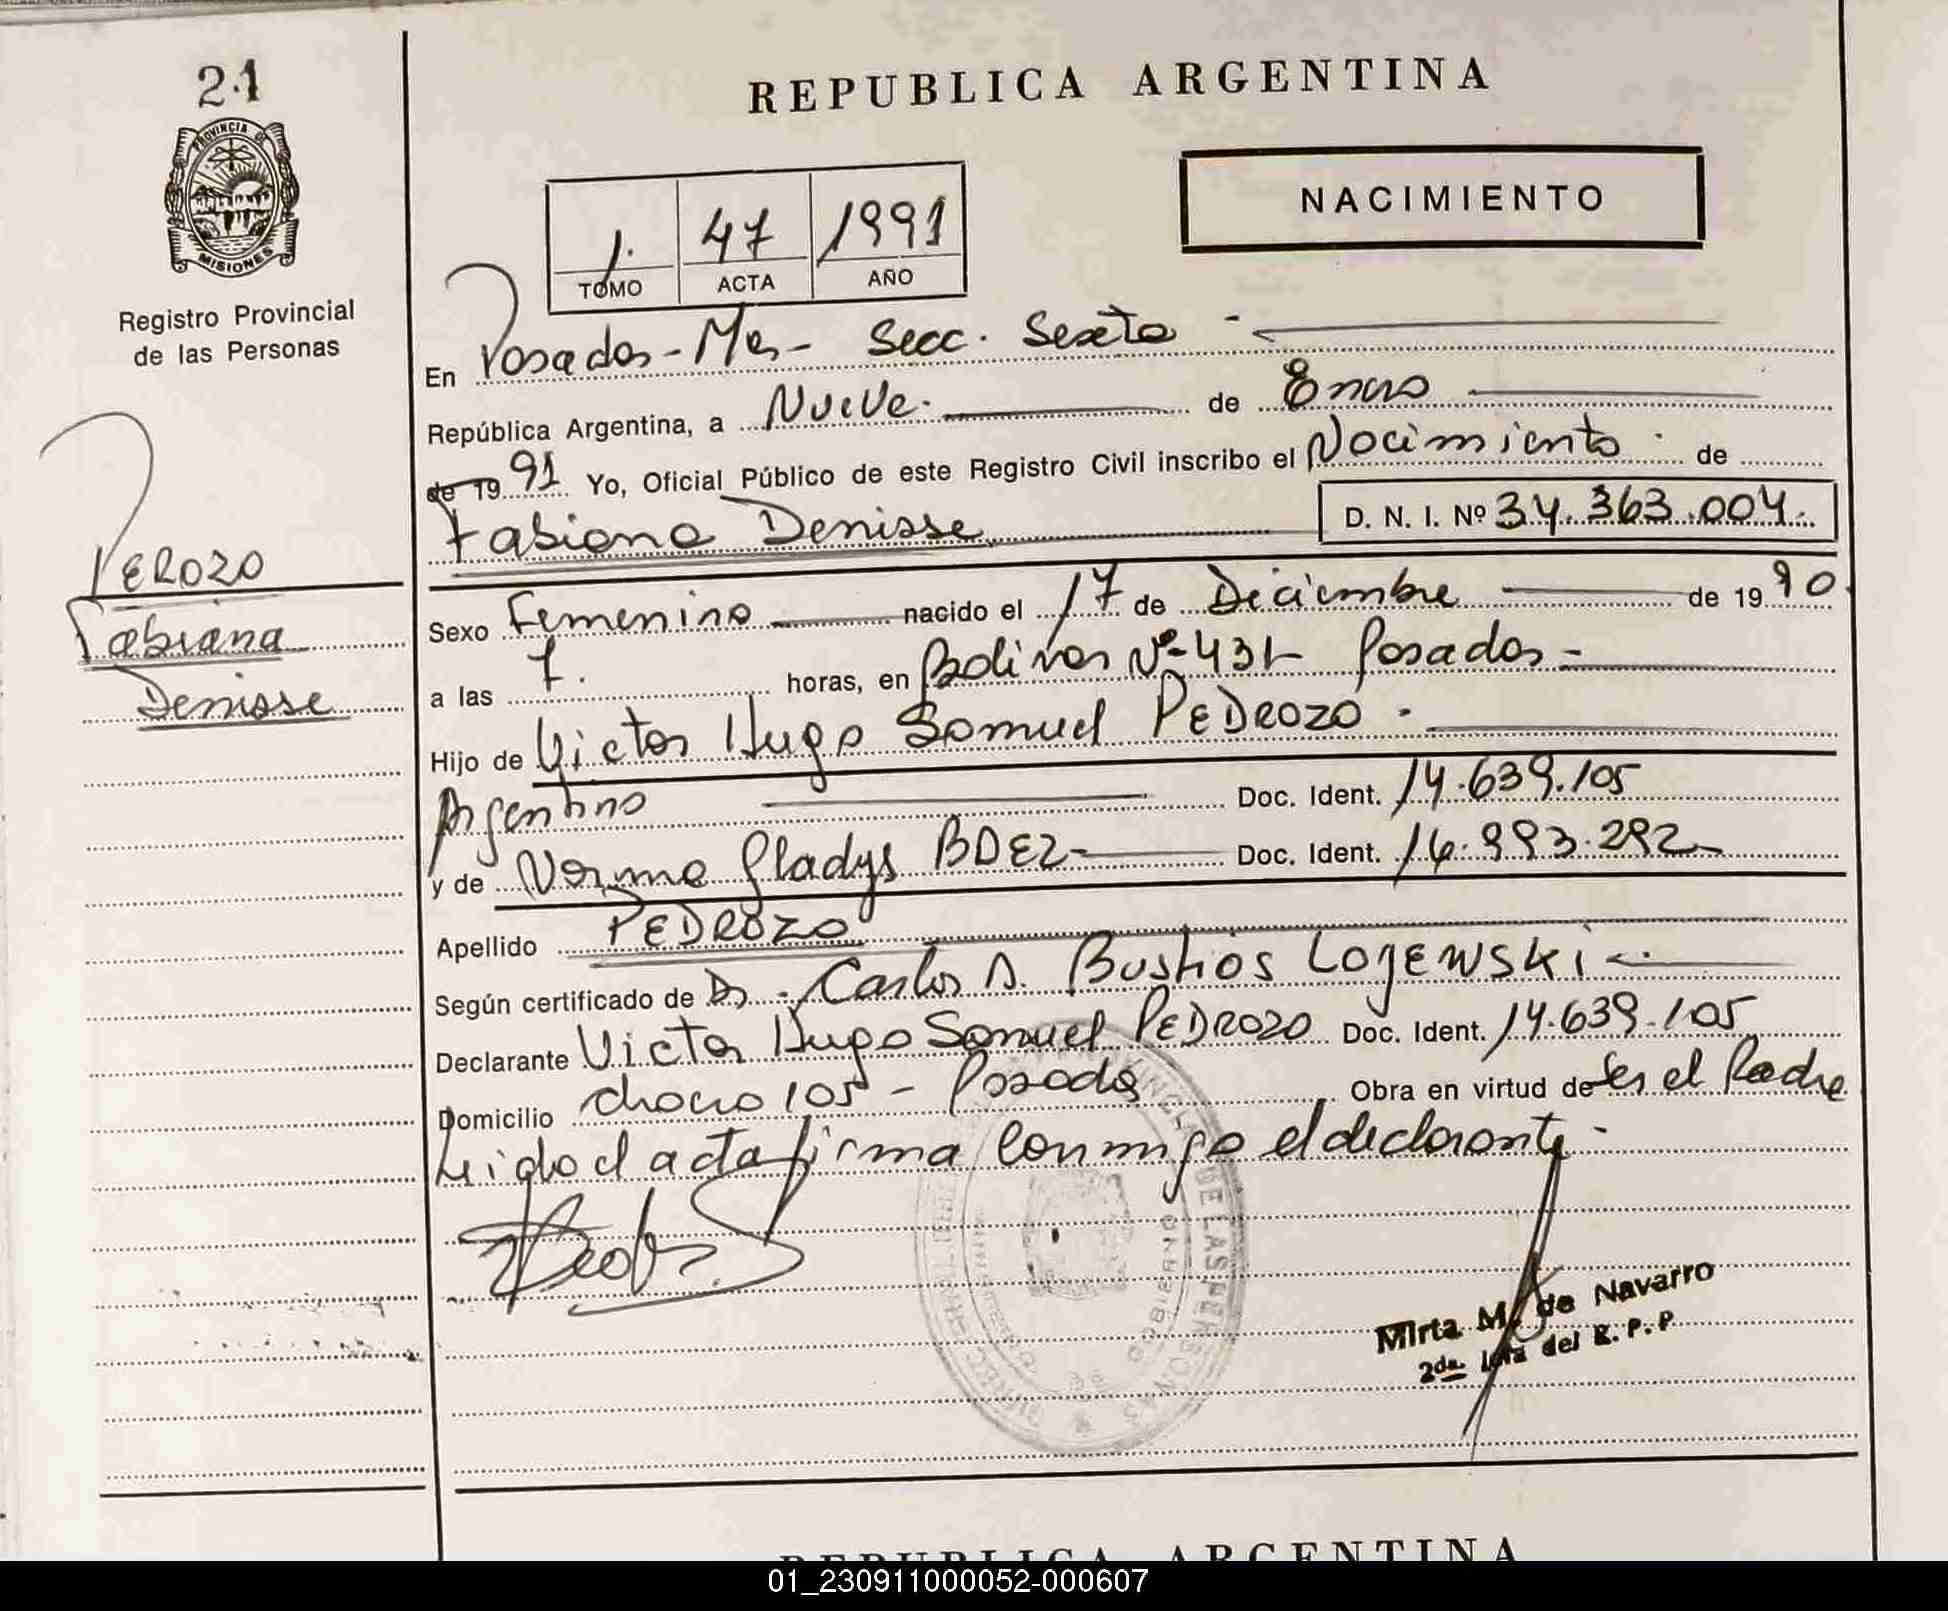 21
PROVINCIA DE
MISIONES
Registro Provincial
de las Personas
PEROZO
Fabiana
Denisse
REPUBLICA ARGENTINA
NACIMIENTO
1. 47 1991
TOMO ACTA AÑO
En Posadas - Mes - Secc. Sexta -
República Argentina, a Nueve. de Enero
de 1991 Yo, Oficial Público de este Registro Civil inscribo el Nacimiento de
Fabiana Denisse D. N. I. Nº 34.363.004.
Sexo Femenino nacido el 17 de Diciembre de 1990.
a las 7. horas, en Bolivar Nº 431 Posadas -
Hijo de Victor Hugo Samuel PEDROZO -
Argentino Doc. Ident. 14.639.105
y de Norma Gladys BDEZ - Doc. Ident. 16.993.292
Apellido PEDROZO
Según certificado de Dr. Carlos A. Bustios LOJEWSKI -
Declarante Victor Hugo Samuel PEDROZO Doc. Ident. 14.639.105
Domicilio Chaco 105 - Posadas Obra en virtud de Ser el Padre
Leido el acta firma conmigo el declarante -
DE LAS PERSONAS
GOBIERNO
Mirta M. de Navarro
2da. Jefa del R. P. P
REPUBLICA ARGENTINA
01_230911000052-000607